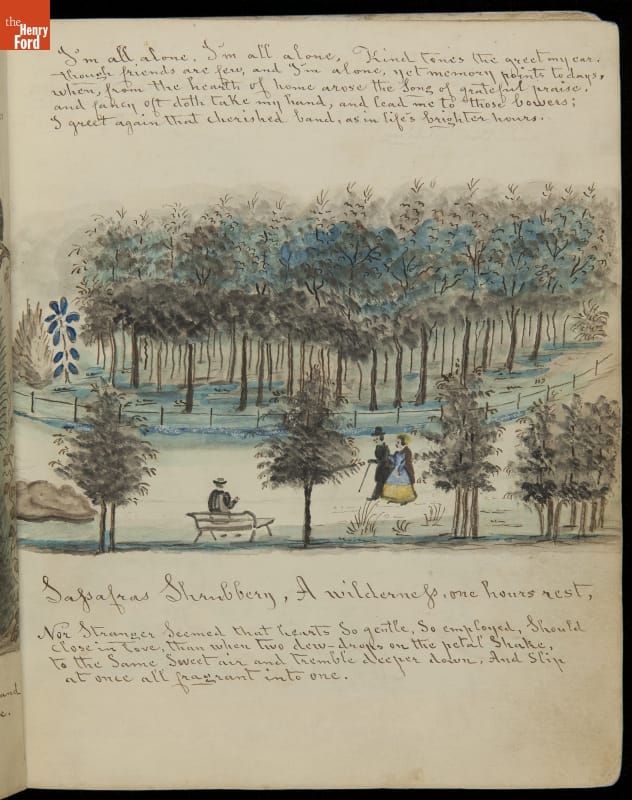 the
Henry
Ford
I'm all alone, I'm all alone, Kind tones the greet my ear.
though friends are few, and I'm alone, yet memory points to days,
when, from the hearth of home arose the Song of grateful praise.
and fancy oft doth take my hand, and lead me to those bowers;
I greet again that cherished band, as in life's brighter hours.
Sassafras Shrubbery, A wilderness, one hours rest,
Nor Stranger Seemed that hearts So gentle, So employed, Should
Close in love, than when two dew-drops on the petal Shake,
to the Same Sweet air and tremble deeper down, And Slip
at once all fragrant into one.
and
e.